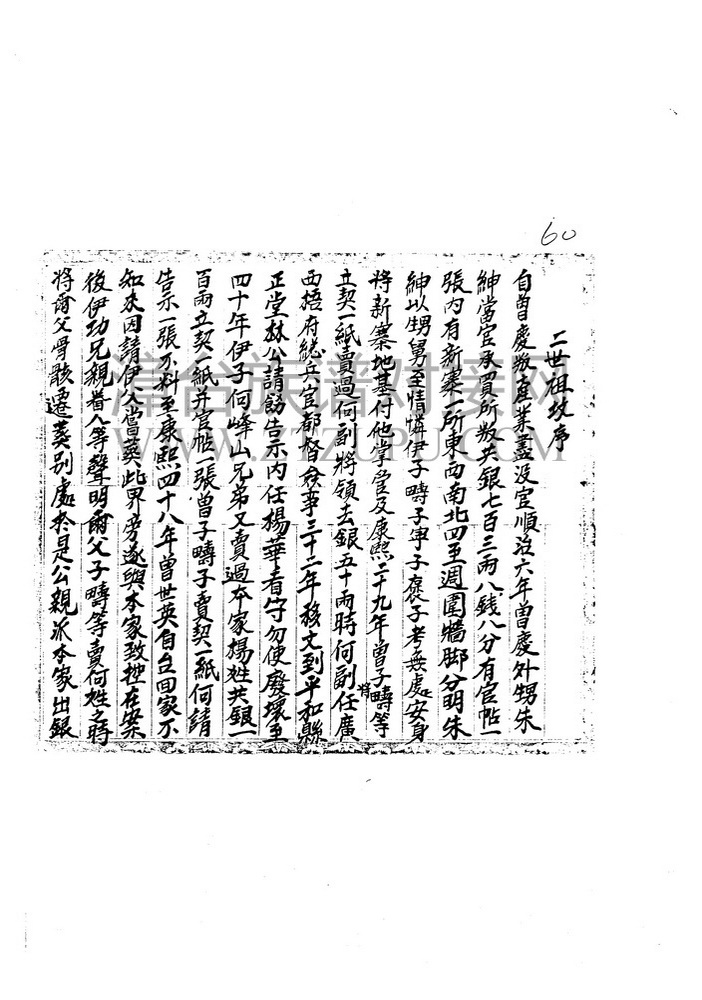 60
二世祖坟序
自曾慶叛產業盡沒官順治六年曾慶外甥朱
紳當官承買所叛共銀七百三兩八錢八分有官帖一
張內有新寨一所東西南北四至週圍墻脚分明朱
紳以甥舅至情憐伊子疇子寧子褒子考無處安身
將新寨地基付他掌管及康熙二十九年曾子疇等將
立契一紙賣過何副將領去銀五十兩時何副任廣
西梧府總兵官都督僉事三十二年移文到平和縣
正堂林公請飭告示內任楊華看守勿使廢壞至
四十年伊子何峰山兄弟又賣過本家揚姓共銀一
百兩立契一紙并官帖一張曾子疇子賣契一紙何請
告示一張不料至康熙四十八年曾世英自台回家不
知來因請伊父當葬此界旁遂與本家致控在案
後伊功兄親耆人等聲明爾父子疇等賣何姓之時
將爾父骨骸遷葬別處於是公親派本家出銀
漳台族谱对接网
WWW.ZTZUPU.COM